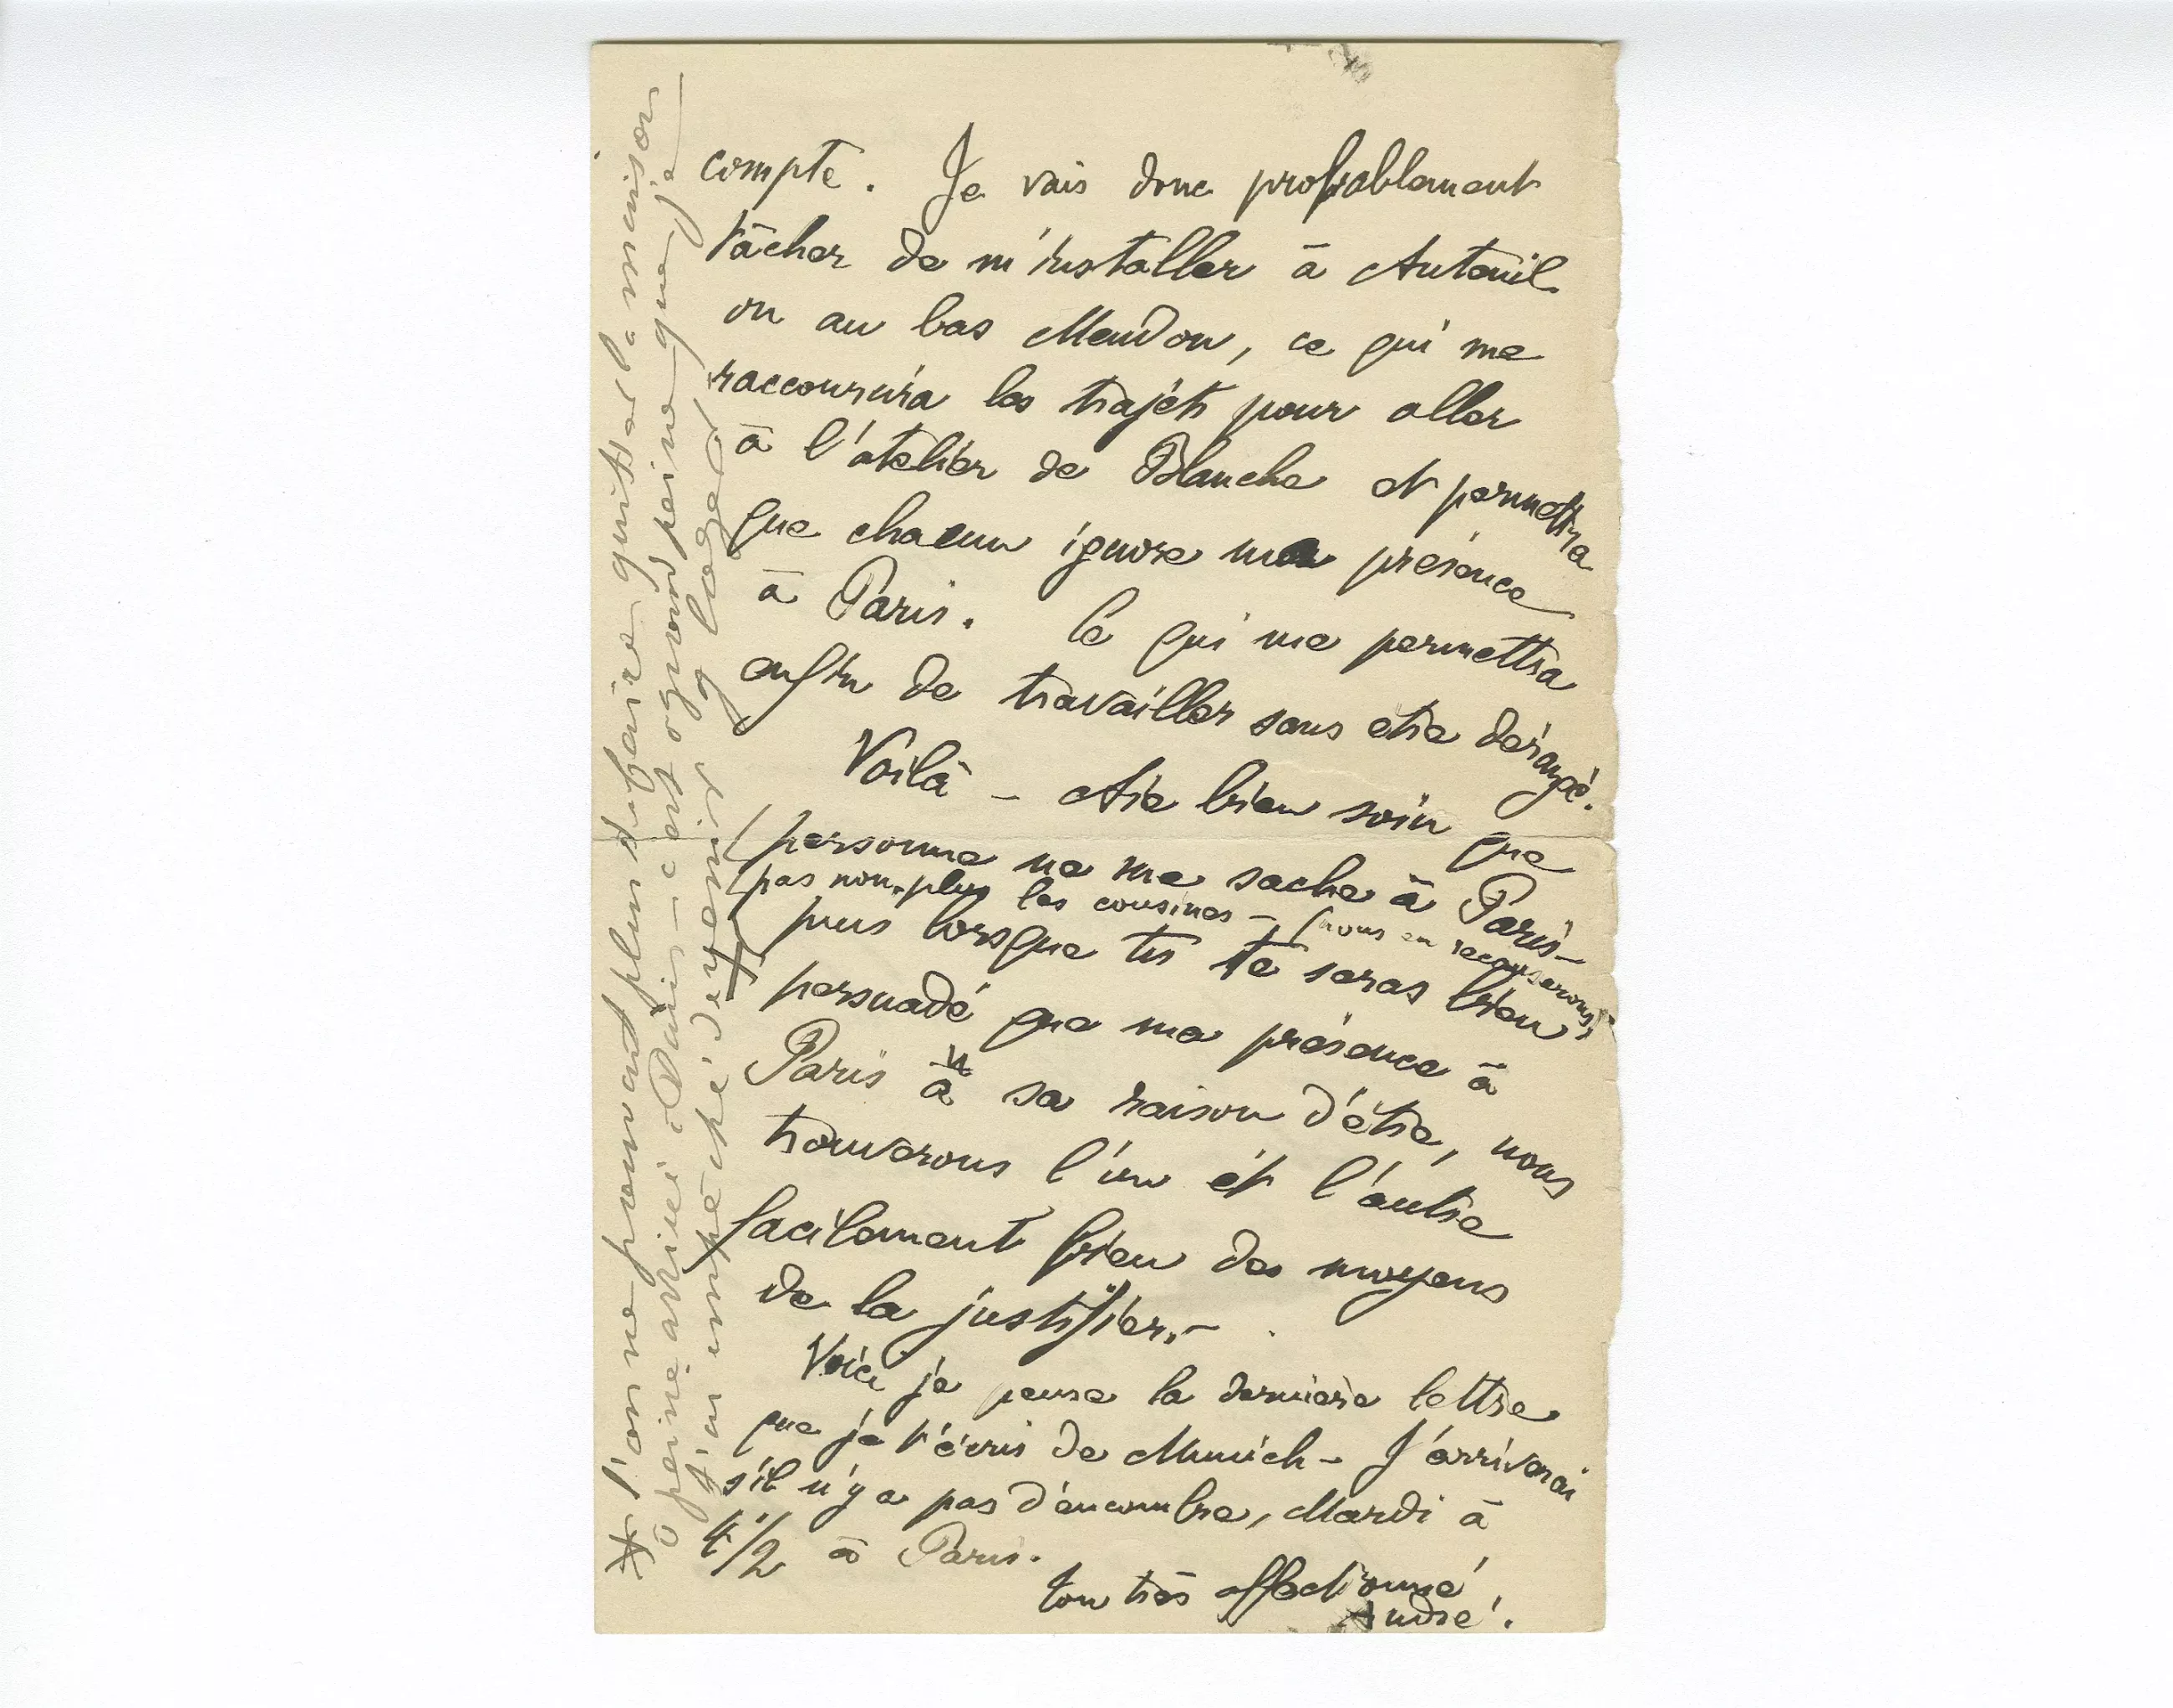 compte. Je vais donc probablement
tâcher de m'installer à Auteuil
ou au bas Meudon, ce qui me
raccourcira les trajets pour aller
à l'atelier de Blanche et permettra
que chacun ignore ma présence
à Paris. Ce qui me permettra
enfin de travailler sans etre dérangé.
Voilà – Aie bien soin que
personne ne me sache à Paris –
pas non-plus les cousines – (nous en recauserons)
puis lorsque tu te seras bien
persuadé que ma présence à
Paris a sa raison d'être, nous
trouverons l'un et l'autre
facilement bien des moyens
de la justifier. –
Voici je pense la dernière lettre
que je t'écris de Munich – J'arriverai
s'il n'y a pas d'encombre, Mardi à
4 1/2 à Paris.
ton très affectionné
André.
* l'on ne pourrait plus d'affaire quitter la maison
à peine arrivé à Paris – c'est à grand peine que je
j'ai empêché d'y venir y loger